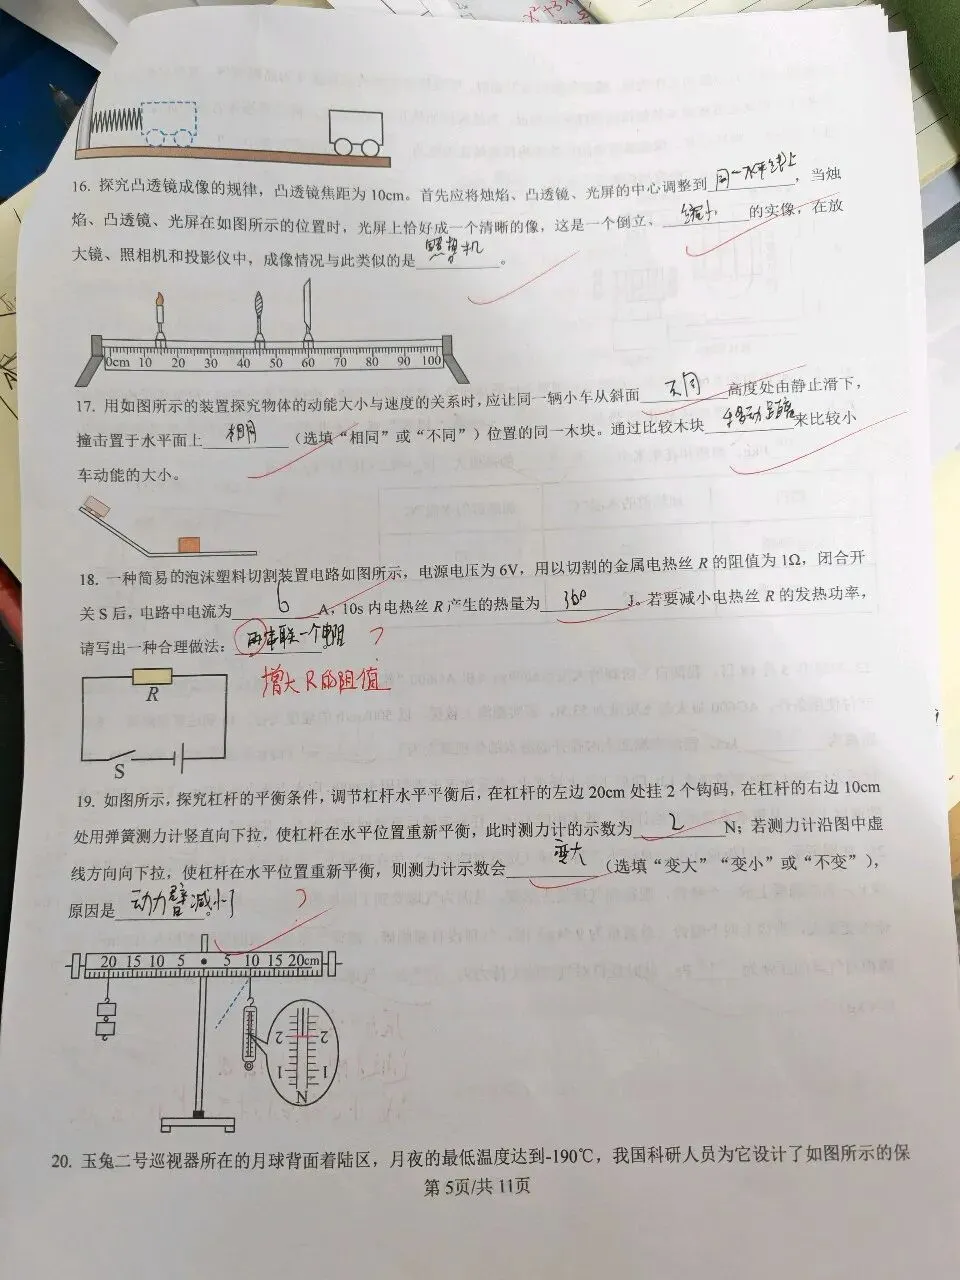 16. 探究凸透镜成像的规律，凸透镜焦距为10cm。首先应将烛焰、凸透镜、光屏的中心调整到同一水平线上，当烛
焰、凸透镜、光屏在如图所示的位置时，光屏上恰好成一个清晰的像，这是一个倒立、缩小的实像，在放
大镜、照相机和投影仪中，成像情况与此类似的是照相机。
0cm 10 20 30 40 50 60 70 80 90 100
17. 用如图所示的装置探究物体的动能大小与速度的关系时，应让同一辆小车从斜面不同高度处由静止滑下，
撞击置于水平面上相同（选填“相同”或“不同”）位置的同一木块。通过比较木块移动距离来比较小
车动能的大小。
18. 一种简易的泡沫塑料切割装置电路如图所示，电源电压为6V，用以切割的金属电热丝R的阻值为1Ω，闭合开
关S后，电路中电流为6A，10s内电热丝R产生的热量为360J。若要减小电热丝R的发热功率，
请写出一种合理做法：再串联一个电阻。
增大R的阻值
R
S
19. 如图所示，探究杠杆的平衡条件，调节杠杆水平平衡后，在杠杆的左边20cm处挂2个钩码，在杠杆的右边10cm
处用弹簧测力计竖直向下拉，使杠杆在水平位置重新平衡，此时测力计的示数为2N；若测力计沿图中虚
线方向向下拉，使杠杆在水平位置重新平衡，则测力计示数会变大（选填“变大”“变小”或“不变”），
原因是动力臂减小了。
20 15 10 5 5 10 15 20cm
2 2
1 1
N
20. 玉兔二号巡视器所在的月球背面着陆区，月夜的最低温度达到-190℃，我国科研人员为它设计了如图所示的保
第5页/共11页